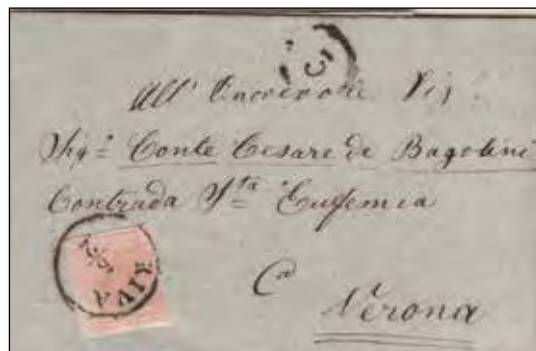 All' Onorevole Sig:
Sig:ʳ Conte Cesare de Bagolini
Contrada Sta Eufemia
Ca
Verona